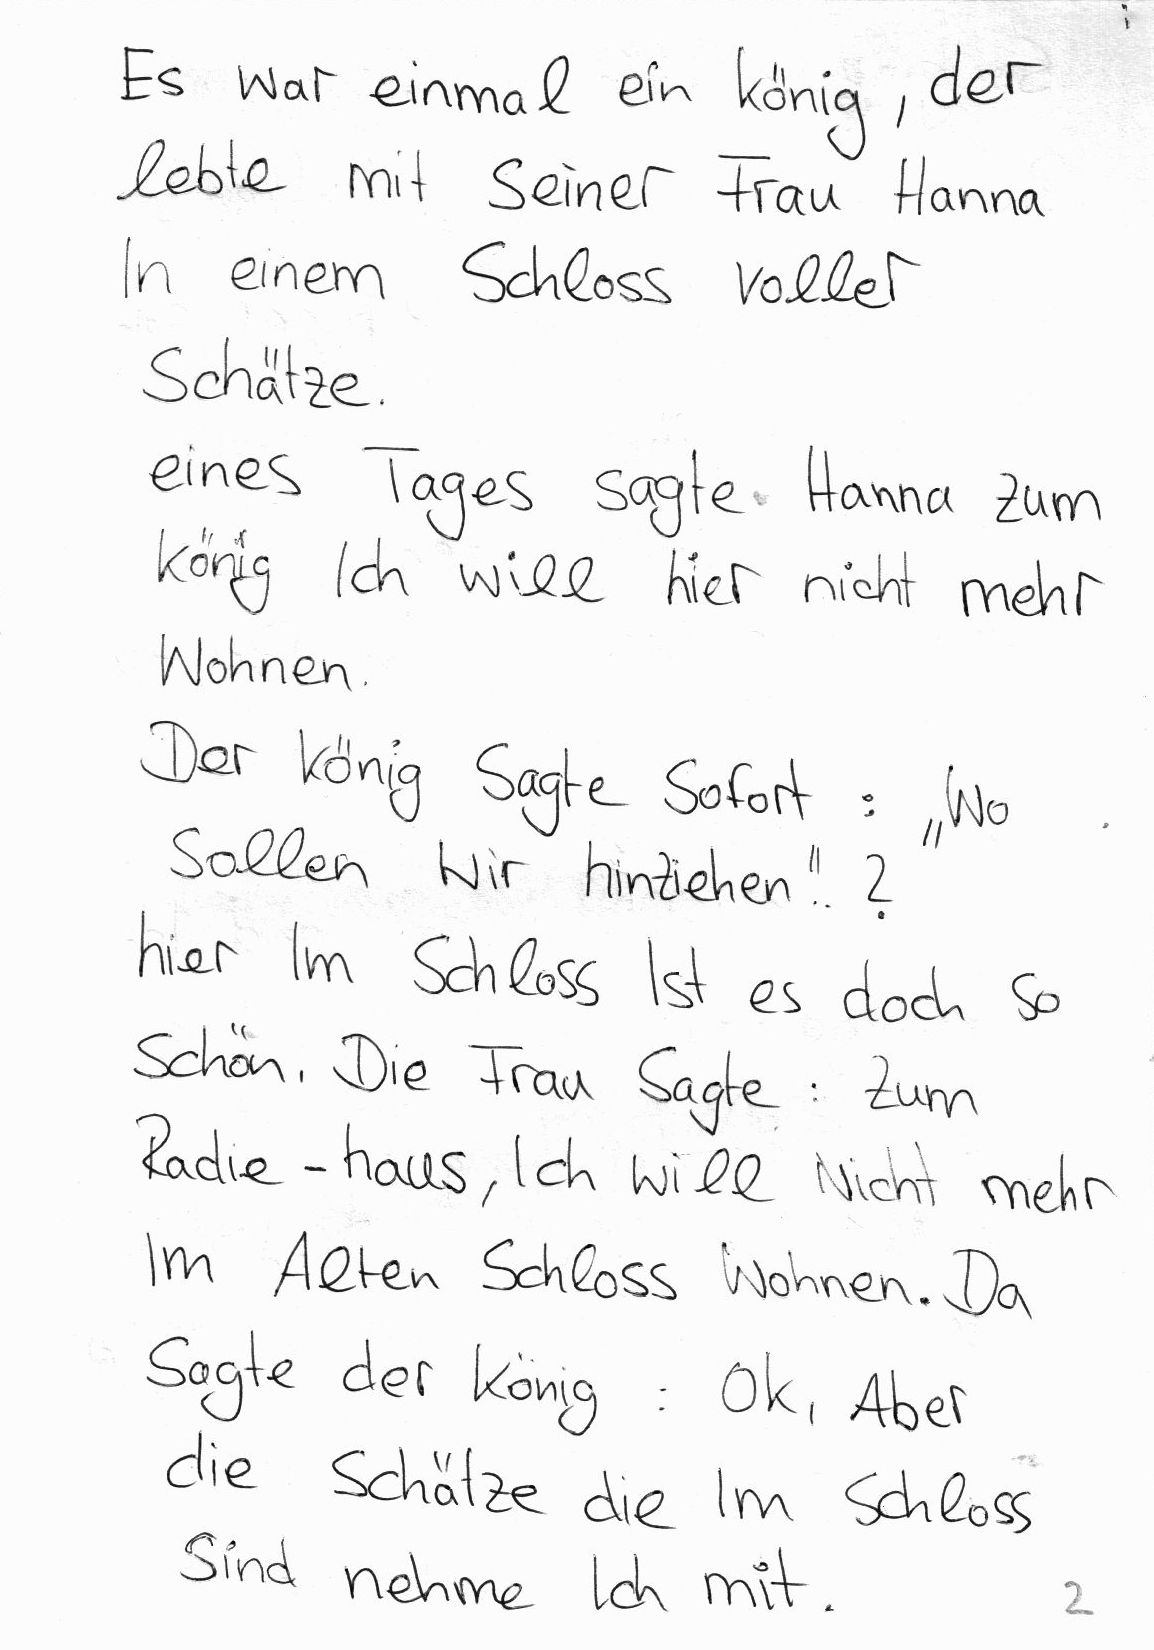 Es war einmal ein könig, der
lebte mit Seiner Frau Hanna
In einem Schloss voller
Schätze.
eines Tages sagte Hanna zum
könig Ich will hier nicht mehr
Wohnen.
Der könig Sagte Sofort : „Wo
Sollen Wir hinziehen"? 
hier Im Schloss Ist es doch so
Schön. Die Frau Sagte : Zum
Radie-haus, Ich will Nicht mehr
Im Alten Schloss Wohnen. Da
Sagte der könig : Ok, Aber
die Schätze die Im Schloss
Sind nehme Ich mit.
2